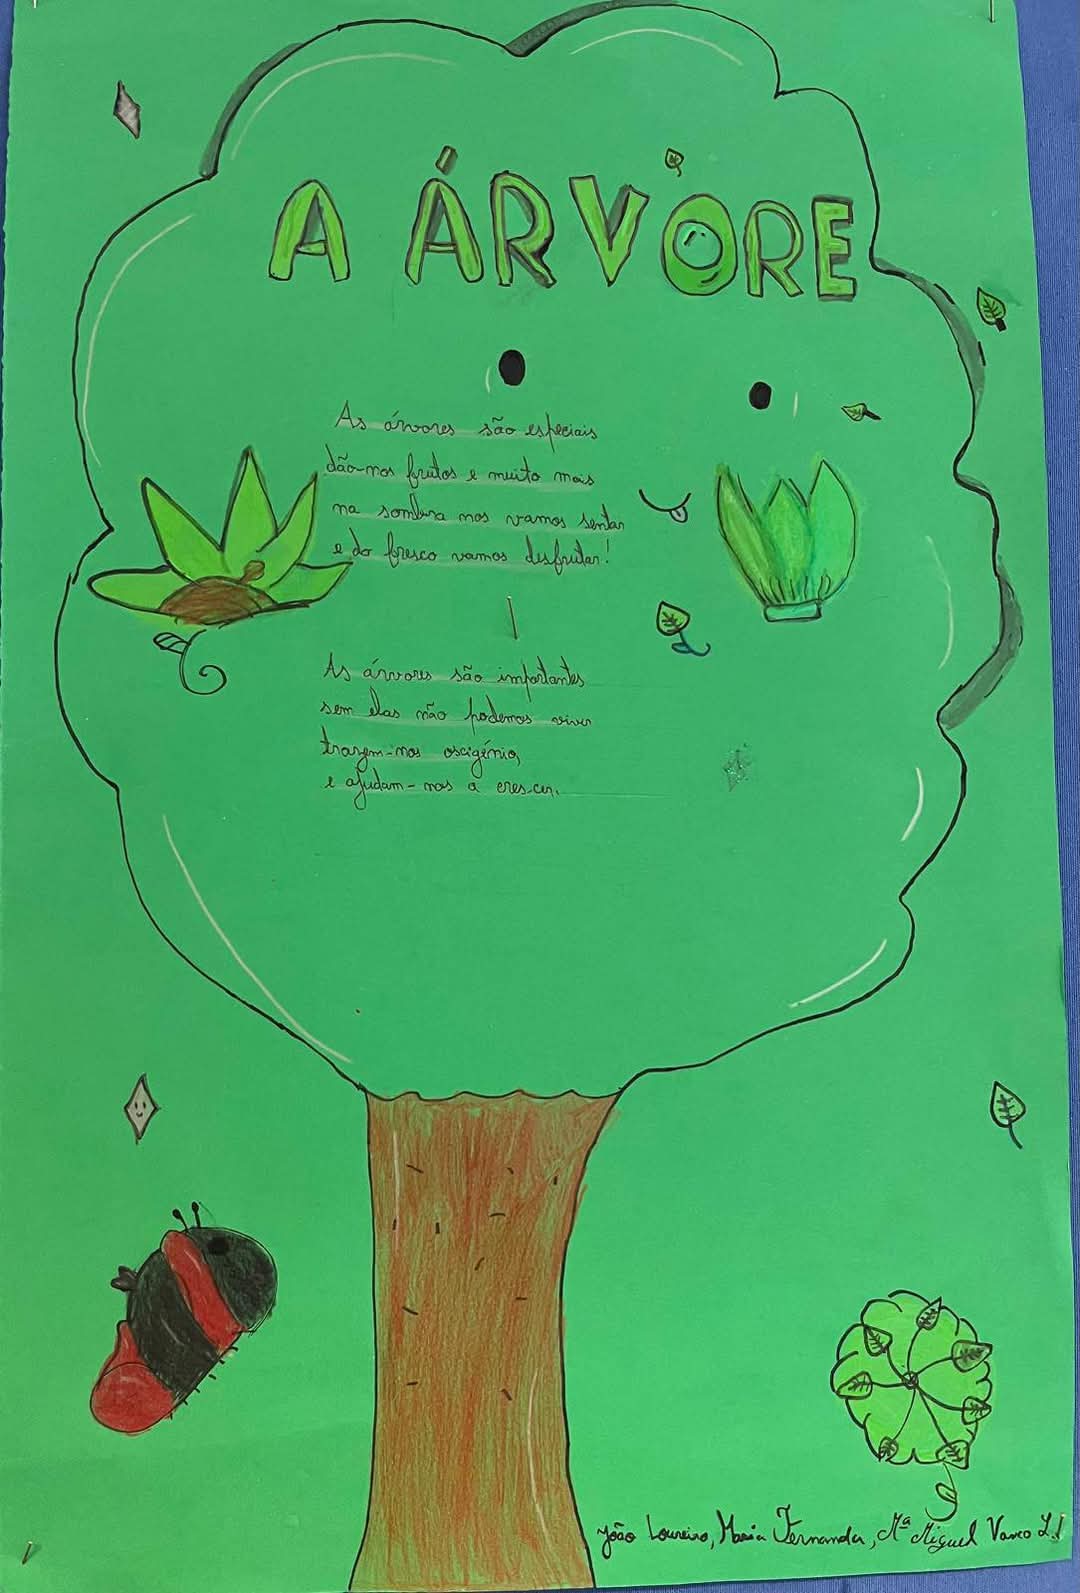 A ÁRVORE
As árvores são especiais
dão-nos frutos e muito mais
na sombra nos vamos sentar
e do fresco vamos disfrutar!
As árvores são importantes
sem elas não podemos viver
trazem-nos oscigénio,
e ajudam-nos a crescer.
João Loureiro, Maria Fernanda, Mª Miguel Vasco L.